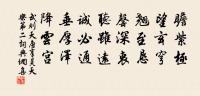 瞻紫極
望玄穹
翹至懇
罄深衷
聽雖遠
誠必通
垂厚澤
降雲宮
武則天唐享昊天
樂第二詞典網集